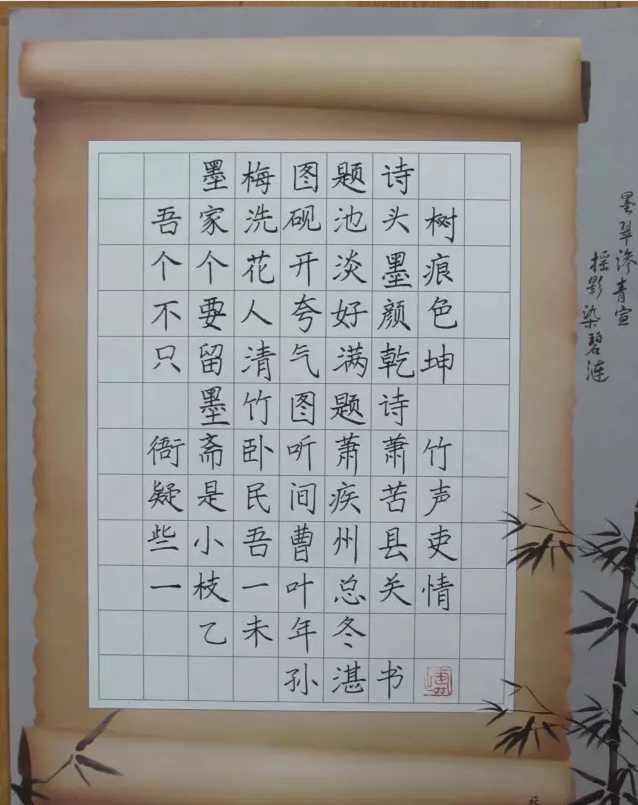 墨梅图题诗
吾家洗砚池头树
个个花开淡墨痕
不要人夸好颜色
只留清气满乾坤
墨竹图题诗
衙斋卧听萧萧竹
疑是民间疾苦声
些小吾曹州县吏
一枝一叶总关情
乙未年冬
孙湛书
墨翠渗青宣
摇影染碧涟